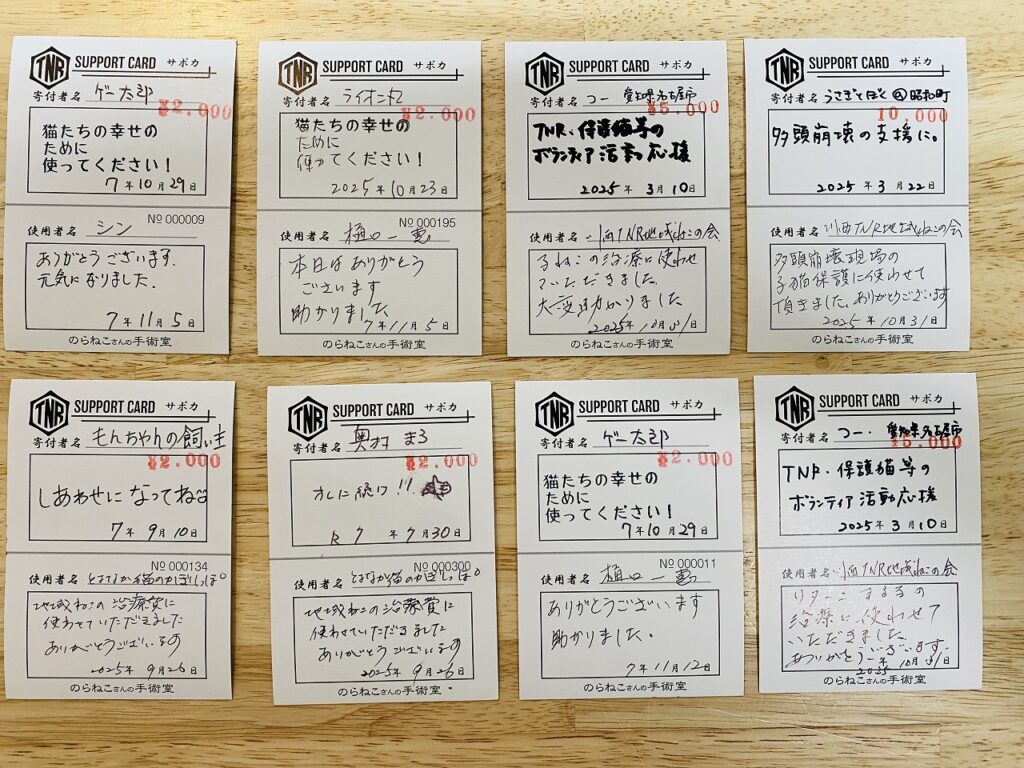 TNR SUPPORT CARD サポカ
寄付者名 ゲー太郎
¥2.000
猫たちの幸せの
ために
使ってください!
7年10月29日
No 000009
使用者名 シン
ありがとうございます.
元気になりました.
7年11月5日
のらねこさんの手術室
TNR SUPPORT CARD サポカ
寄付者名 ライオン丸
¥2.000
猫たちの幸せの
ために
使ってください!
2025年10月23日
No 000195
使用者名 樋口一恵
本日はありがとう
ございます
助かりました
7年11月5日
のらねこさんの手術室
TNR SUPPORT CARD サポカ
寄付者名 つー 愛知県名古屋市
¥5.000
TNR・保護猫等の
ボランティア活動応援
2025年3月10日
使用者名 川西TNR地域ねこの会
るねこの治療に使わせ
ていただきました
大変助かりました
2025年10月31日
のらねこさんの手術室
TNR SUPPORT CARD サポカ
寄付者名 うさぎとぼく@昭和町
10.000
多頭崩壊の支援に。
2025年3月22日
使用者名 川西TNR地域ねこの会
多頭崩壊現場の
子猫保護に使わせて
頂きました。ありがとうございます
2025年10月31日
のらねこさんの手術室
TNR SUPPORT CARD サポカ
寄付者名 もんちゃんの飼い主
¥2.000
しあわせになってね
7年9月10日
No 000134
使用者名 となたか猫のかぎしっぽ。
地域ねこの治療費に
使わせていただきました
ありがとうございます
2025年9月26日
のらねこさんの手術室
TNR SUPPORT CARD サポカ
寄付者名 奥村 まろ
¥2.000
オレに続け!!
R7年7月30日
No 000300
使用者名 となたか猫のかぎしっぽ。
地域ねこの治療費に
使わせていただきました
ありがとうございます
2025年9月26日
のらねこさんの手術室
TNR SUPPORT CARD サポカ
寄付者名 ゲー太郎
¥2.000
猫たちの幸せの
ために
使ってください!
7年10月29日
No 000011
使用者名 樋口一恵
ありがとうございます
助かりました。
7年11月12日
のらねこさんの手術室
TNR SUPPORT CARD サポカ
寄付者名 つー・愛知県名古屋市
¥5.000
TNR・保護猫等の
ボランティア活動応援
2025年3月10日
使用者名 川西TNR地域ねこの会
治療に使わせて
いただきました。
ありがとうございます.
2025年10月31日
のらねこさんの手術室